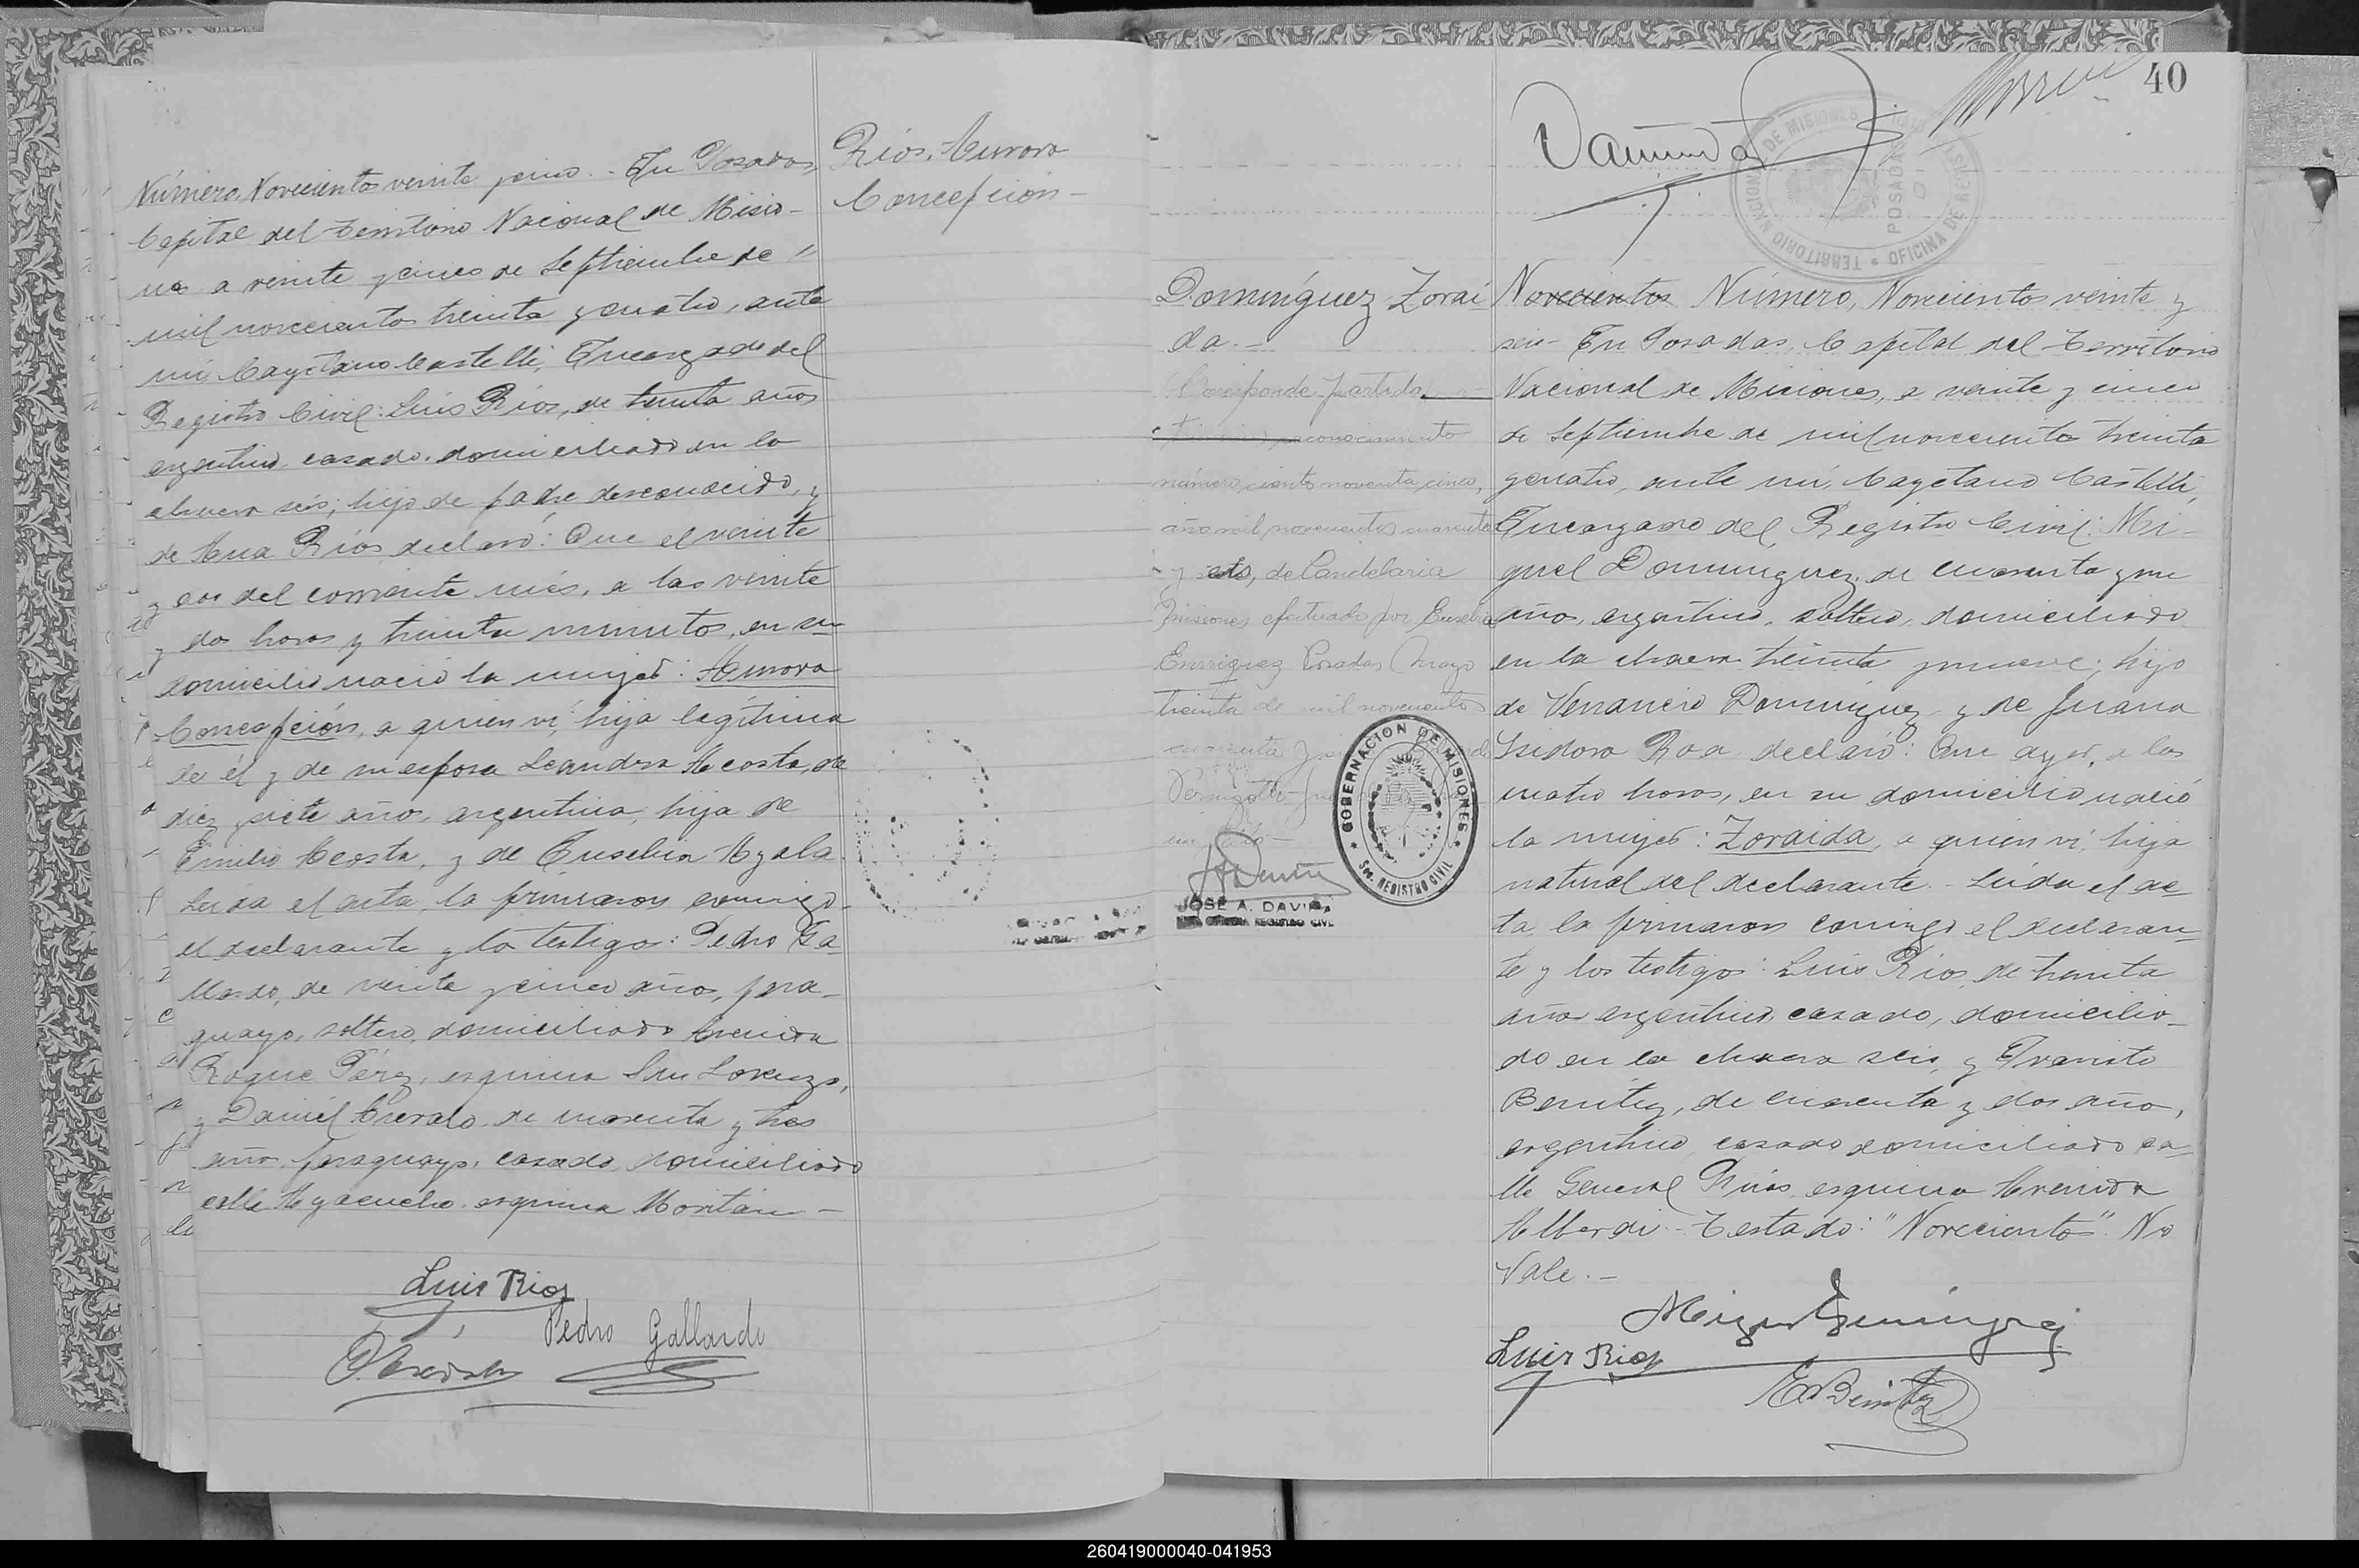 Número, Novecientos veinte y cinco.- En Posadas,
Capital del Territorio Nacional de Misio-
nes a veinte y cinco de Septiembre de "
mil novecientos treinta y cuatro, ante
mí, Cayetano Castelli, Encargado del
Registro Civil: Luis Ríos, de treinta años
argentino, casado, domiciliado en la
chacra seis; hijo de padre desconocido, y
de Ana Ríos, declaró: Que el veinte
y dos del corriente més, a las veinte
y dos horas y treinta minutos, en su
domicilio nació la mujer: Aurora
Concepción, a quien ví, hija legítima
de él y de su esposa Leandra Acosta, de
diez y siete años, argentina, hija de
Emilio Acosta, y de Eusebia Ayala.
Leída el acta, la firmaron conmigo
el declarante y los testigos: Pedro Ga-
llardo, de veinte y cinco años, para-
guayo, soltero, domiciliado Avenida
Roque Pérez, esquina San Lorenzo,
y Daniel Arevalo, de cuarenta y tres
años, paraguayo, casado, domiciliado
calle Ayacucho, esquina
Luis Rios
Pedro Gallardo
Ríos, Aurora
Concepción -
40
TERRITORIO NACIONAL DE MISIONES
POSADAS
OFICINA DE
Domínguez Zorai-
da.-
Corresponde partida
reconocimiento
número ciento noventa, cinco,
año mil novecientos cuarenta
y de Candelaria
Misiones efectuado por Eusebia
Enrriquez Posadas Mayo
treinta de mil novecientos
cuarenta y
GOBERNACION DE MISIONES
Sec. REGISTRO CIVIL
JOSE A. DAVIÑA
REGISTRO CIVIL
Novecientos Número, Novecientos veinte y
seis- En Posadas, Capital del Territorio
Nacional de Misiones, a veinte y cinco
de Septiembre de mil novecientos treinta
y cuatro, ante mí, Cayetano Castelli,
Encargado del Registro Civil: Mi-
guel Dominguez, de cuarenta y un
años, argentino, soltero, domiciliado
en la chacra treinta y nueve; hijo
de Venancio Dominguez y de Juana
Isidora Roa declaró: Que ayer, a las
cuatro horas, en su domicilio nació
la mujer: Zoraida, a quien ví, hija
natural del declarante.- Leída el ac-
ta, la firmaron conmigo el declaran-
te y los testigos: Luis Ríos, de treinta
años argentino, casado, domicilia-
do en la chacra seis, y Evaristo
Benitez, de cuarenta y dos años,
argentino, casado domiciliado ca-
lle General esquina Avenida
Alberdi.- Testado: "Novecientos". No
Vale.-
Miguel Dominguez
Luis Rios
E Benitez
260419000040-041953